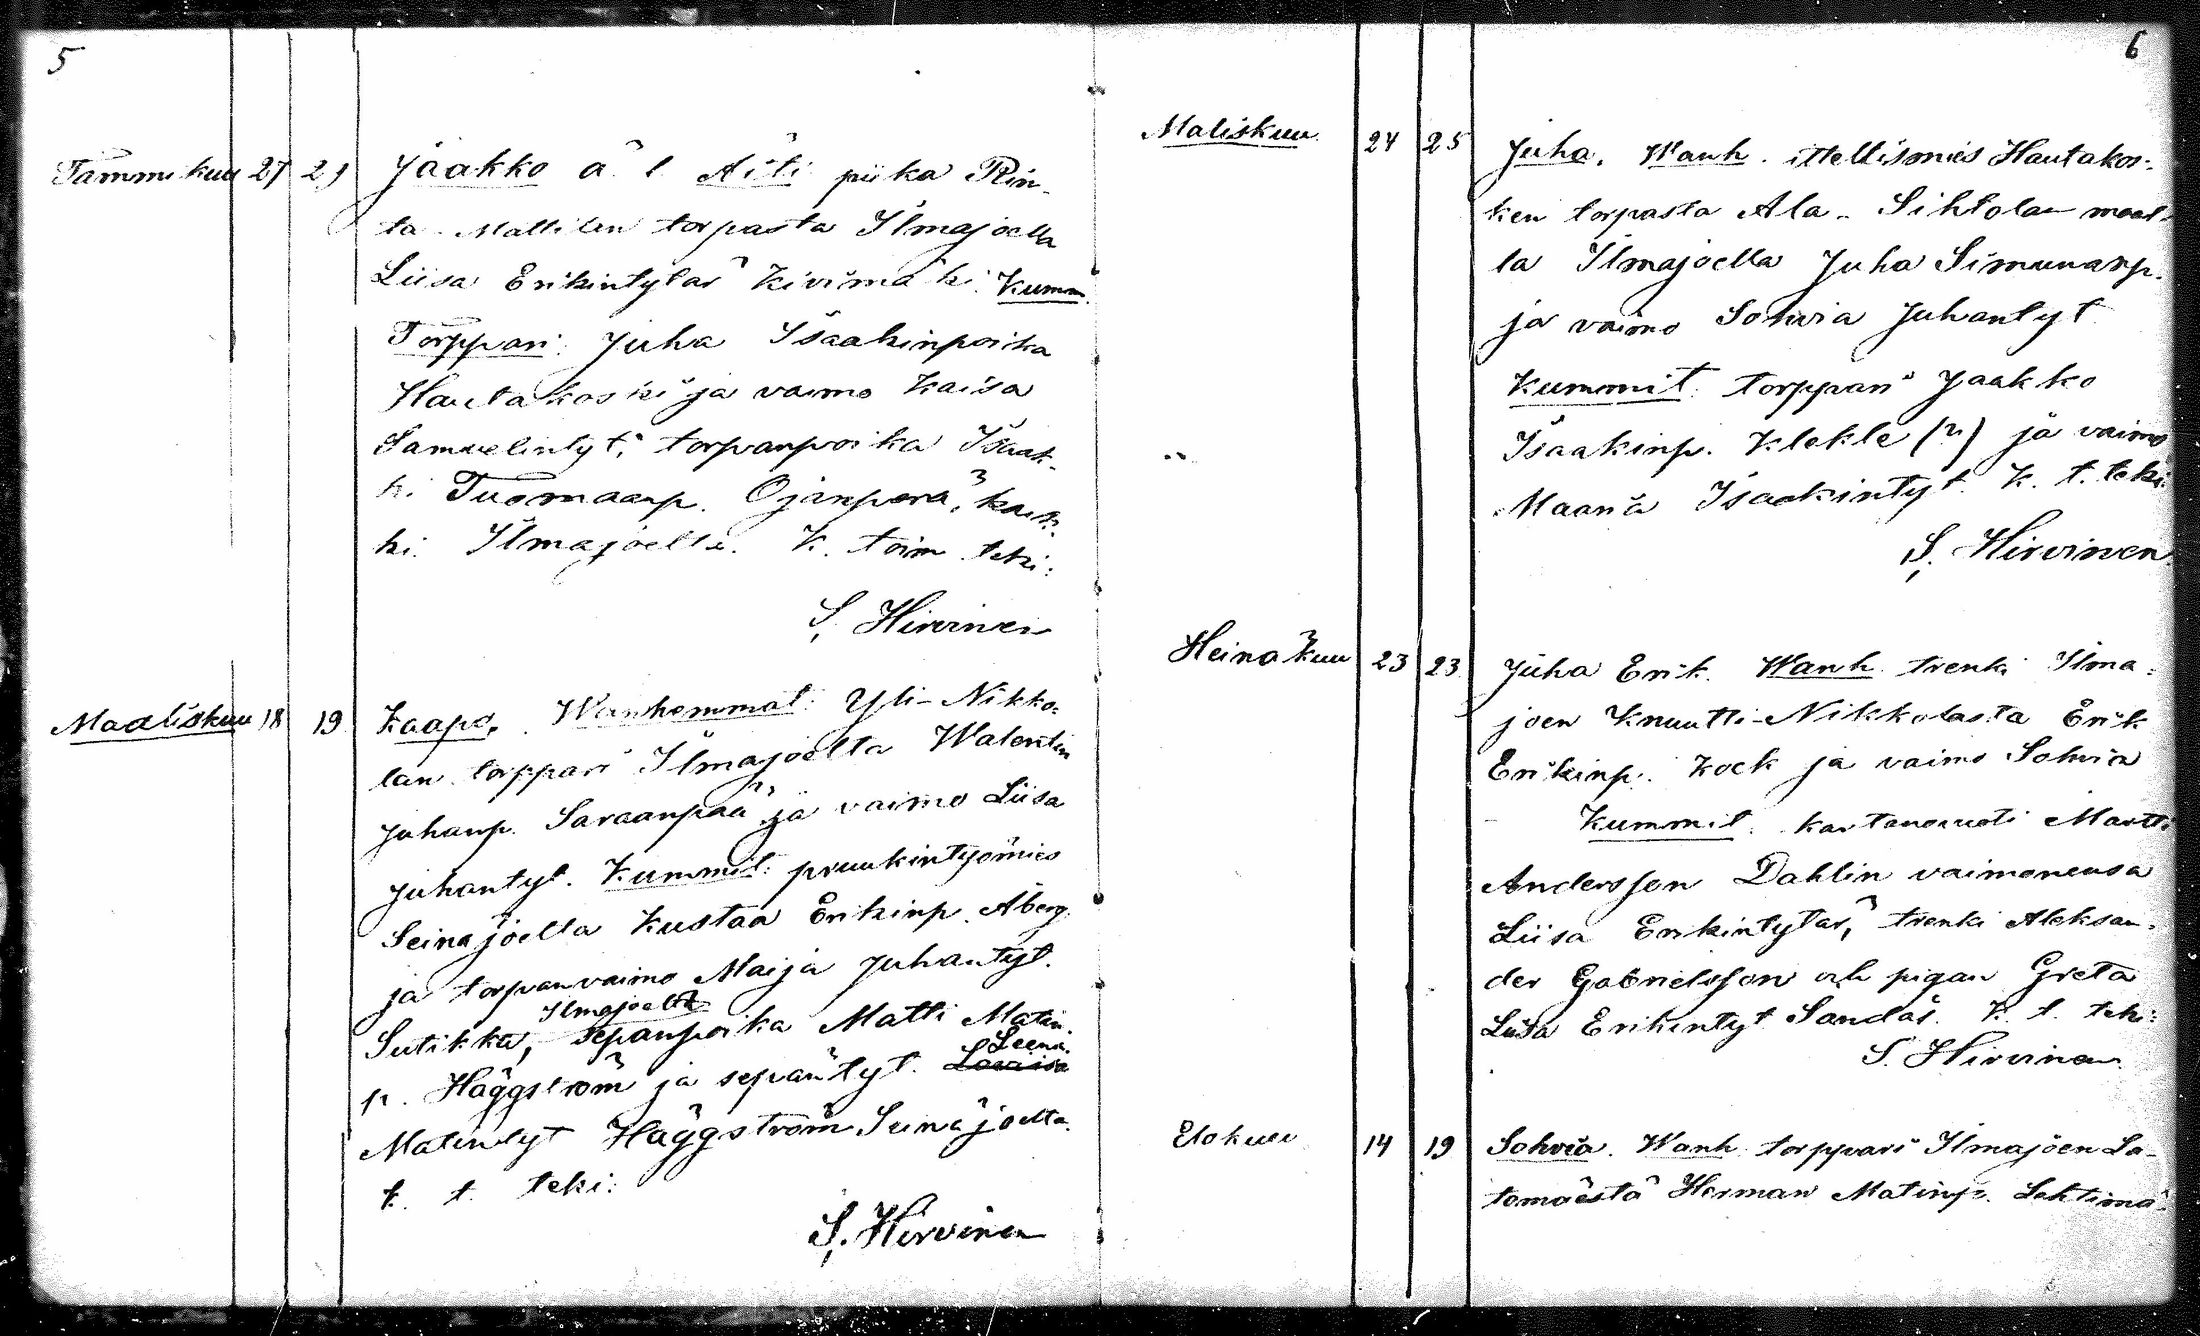 5
Tammikuu 27 29 Jaakko ä. l. Äiti piika Rin-
ta-Mattilan torpasta Ilmajoella
Liisa Erikintytär Kivimäki. Kumm.
Torppari Juha Isaakinpoika
Hautakoski ja vaimo Kaisa
Samuelintyt., torpanpoika Isaak-
ki Tuomaanp. Ojanperä, kaik-
ki Ilmajoelta. K. toim. teki:
S. Hirvinen
Maaliskuu 18 19 Kaapo. Wanhemmat: Yli-Nikko-
lan torppari Ilmajoelta Walentin
Juhanp. Saraanpää ja vaimo Liisa
Juhantyt. Kummit: pruukintyömies
Seinäjoella Kustaa Erikinp. Åberg
ja torpanvaimo Maija Juhantyt.
Ilmajoelta
Sutikka, sepänpoika Matti Matin-
Leena
p. Häggström ja sepäntyt. Lovisa
Matintyt Häggström Seinäjoelta.
k. t. teki:
S. Hirvinen
6
Maliskuu 24 25 Juha. Wanh. ittellismies Hautakos-
ken torpasta Ala-Sihtolan maal-
la Ilmajoella Juha Simunanp.
ja vaimo Sohvia Juhantyt.
Kummit: torppari Jaakko
Isaakinp. Klekle (?) ja vaimo
Maaria Isaakintyt. K. t. teki:
S. Hirvinen
Heinäkuu 23 23 Juha Erik. Wanh. trenki Ilma-
joen Knuutti-Nikkolasta Erik
Erikinp. Kock ja vaimo Sohvia
Kummit: kartanovuoti Martti
Andersson Dahlin vaimonensa
Liisa Erikintytär, trenki Aleksan-
der Gabrielsson och pigan Greta
Liisa Erikintyt. Sandås. K. t. teki:
S. Hirvinen
Elokuu 14 19 Sohvia. Wanh. torppari Ilmajoen La-
tomäestä Herman Matinp. Lehtimä-